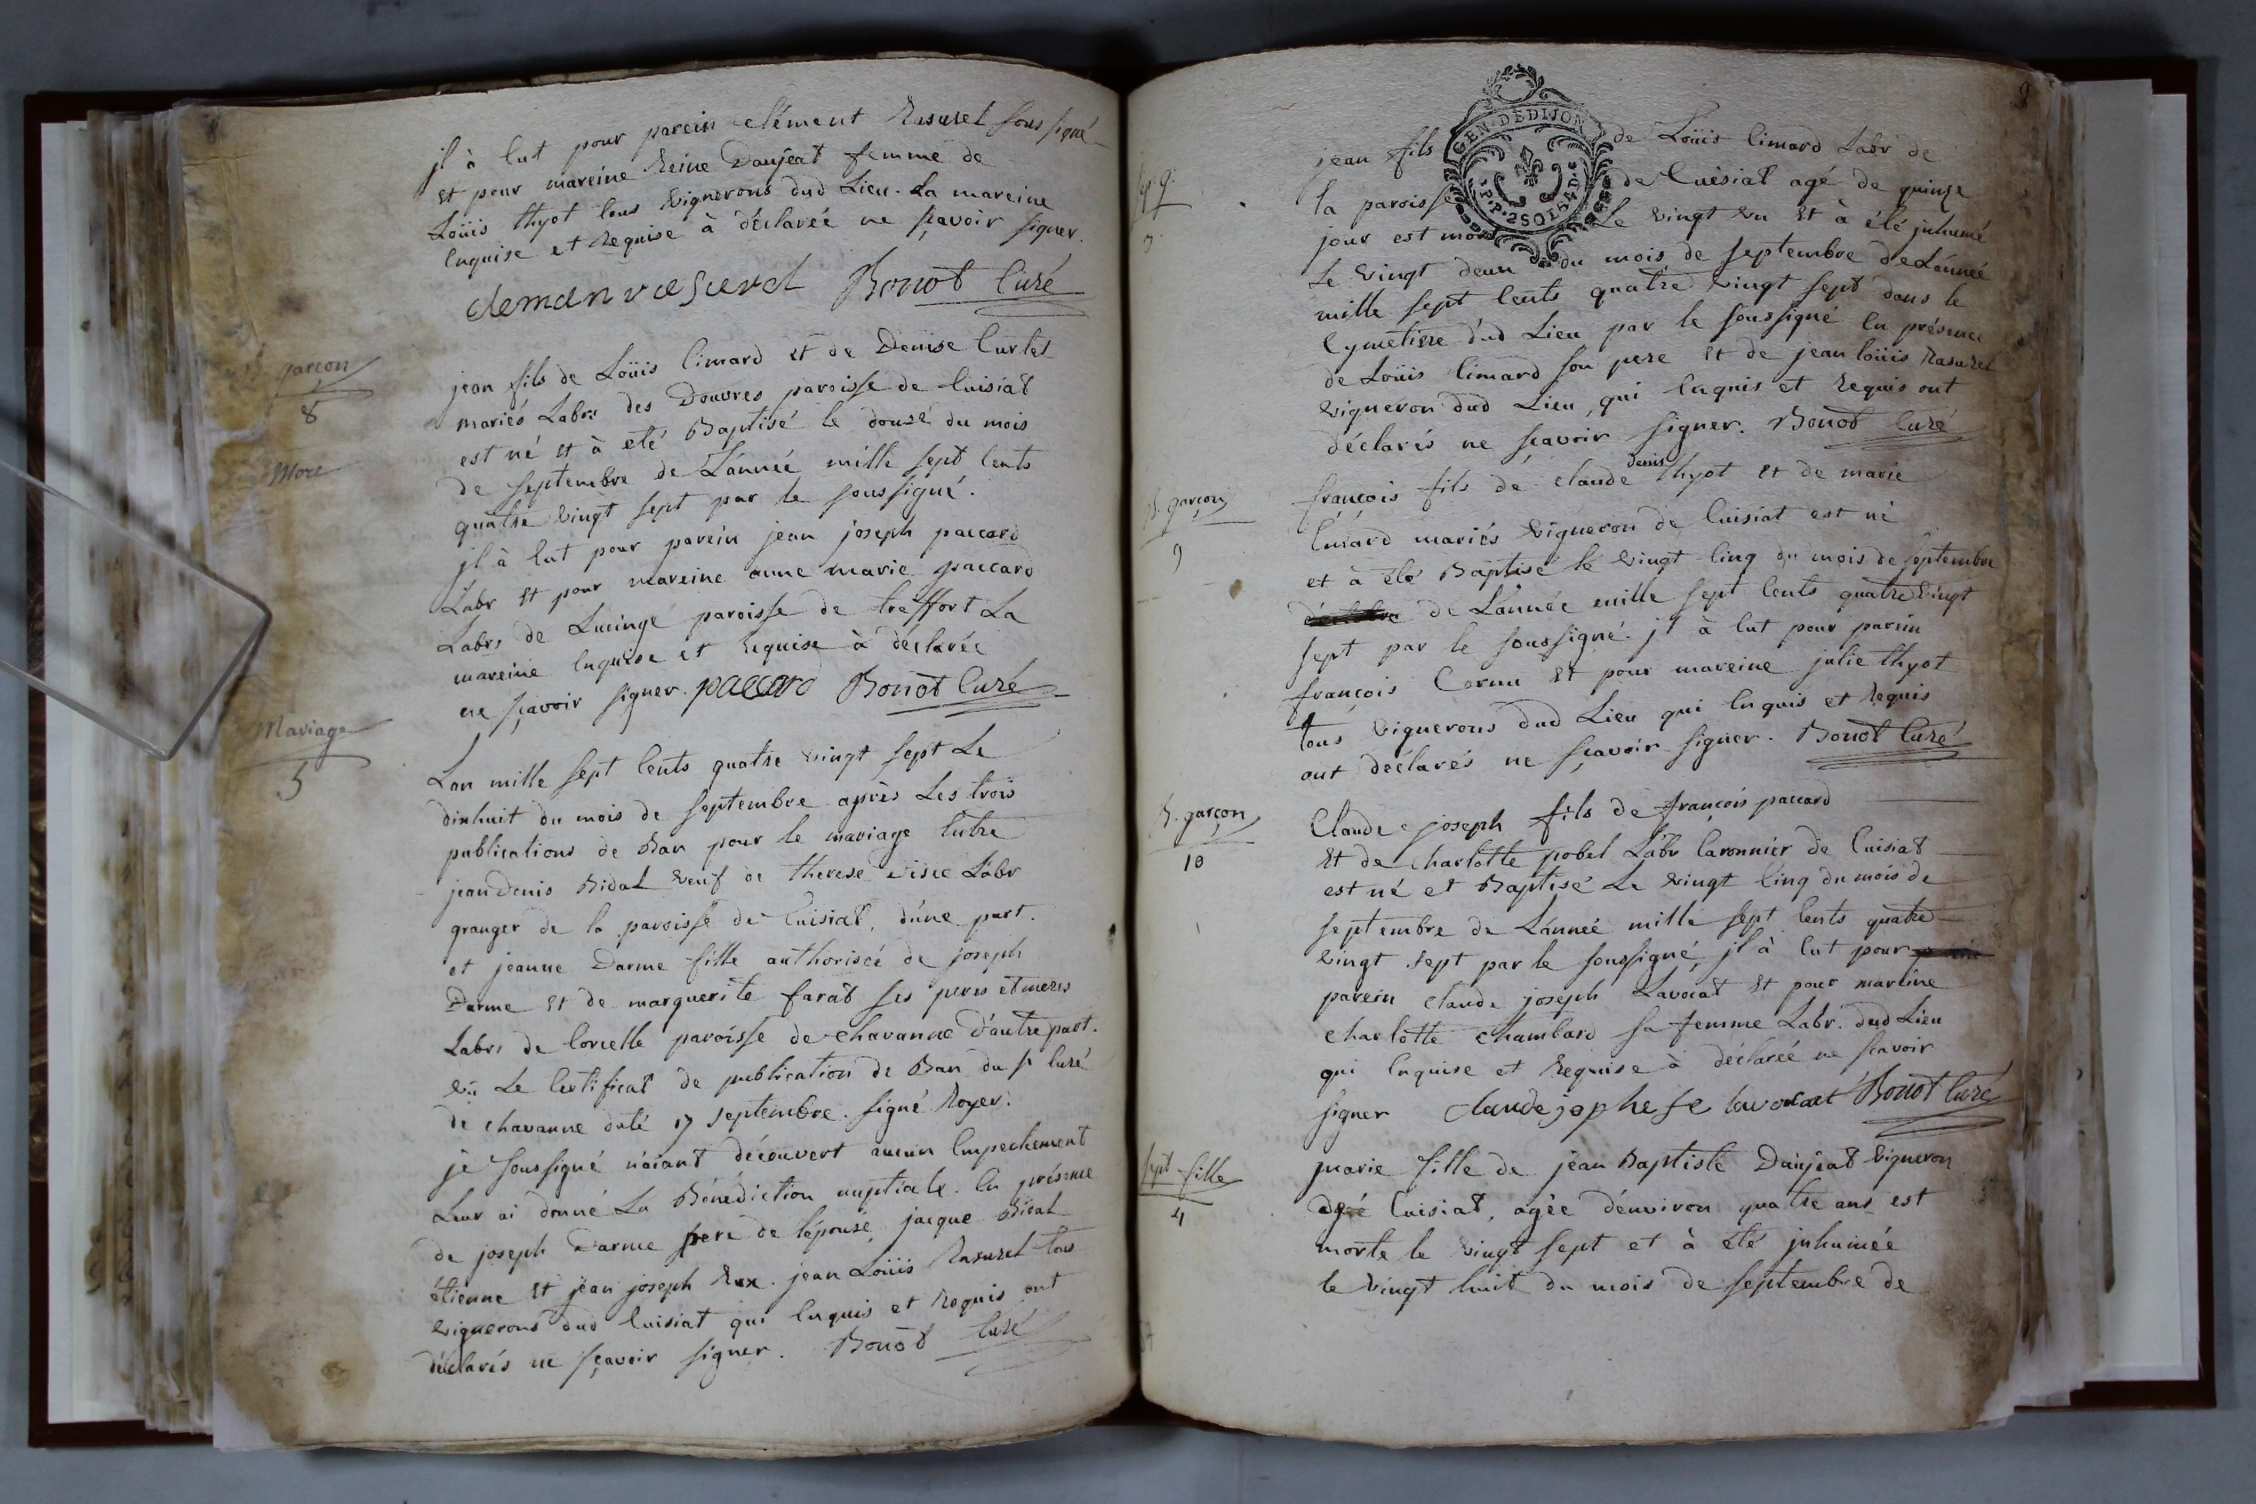 jl à Eut pour parein clément Rasurel soussigné
Et pour mareine Reine Daujeat femme de
Loüis thyot tous Vignerons dud Lieu. La mareine
Enquise et Requise à déclarée ne sçavoir signer.
cleman rasurel Bonot Curé
garcon
8
Mort
jean fils de Loüis Cimard Et de Denise Curtel
mariés Labrs des Douvres paroisse de Cuisiat
est né Et à eté Baptisé le douze du mois
de septembre de L'année mille sept Cents
quatre Vingt sept par le soussigné.
jl à Eut pour parein jean joseph paccard
Labr Et pour mareine anne marie paccard
Labrs de Lucinge paroisse de treffort La
mareine Enquise et Requise à déclarée
ne sçavoir signer. paccard Bonot Curé
Mariage
5
L'an mille sept Cents quatre vingt sept Le
dixhuit du mois de septembre après Les trois
publications de Ban pour le mariage Entre
jean Denis Bidal Veuf de therese Labr
granger de la paroisse de Cuisiat, d'une part.
et jeanne Darme fille authorisée de joseph
Darme Et de marguerite farat ses peres et meres
Labrs de Corcelle paroisse de chavanne d'autre part.
Vû Le Certificat de publication de Ban du sr Curé
de chavanne daté 17 septembre. signé Royer.
je soussigné n'aiant découvert aucun Empechement
Leur ai donné La Bénédiction nuptiale. En présence
de joseph Darme pere de l'épouse, jacque Bidal
étienne Et jean joseph Rux. jean Loüis Rasurel tous
Vignerons dud Cuisiat qui Enquis et Requis ont
déclarés ne sçavoir signer. Bonot Curé
9
GEN. DE DIJON
jean fils de Loüis Cimard Labr de
la paroisse de Cuisiat agé de quinze
jour est mort Le Vingt Un Et à été juhumé
Le Vingt deux du mois de septembre de L'année
mille sept Cents quatre Vingt sept dans le
Cymetiere dud Lieu par le soussigné En présence
de Loüis Cimard son pere Et de jean loüis Rasurel
Vigneron dud Lieu, qui Enquis et Requis ont
déclarés ne sçavoir signer. Bonot Curé
B. garçon
9
françois fils de claude denis thyot Et de marie
mariés Vigneron de Cuisiat est né
et à été Baptisé le Vingt Cinq du mois de septembre
de L'année mille sept Cents quatre Vingt
sept par le soussigné. jl à Eut pour parein
françois Cornu Et pour mareine julie thyot
tous Vignerons dud Lieu qui Enquis et Requis
ont déclarés ne sçavoir signer. Bonot Curé
B. garçon
10
Claude joseph fils de françois paccard
Et de Charlotte pobel Labr Caronnier de Cuisiat
est né et Baptisé Le Vingt Cinq du mois de
septembre de L'année mille sept Cents quatre
Vingt sept par le soussigné, jl à Eut pour
parein claude joseph Lavocat Et pour mareine
Charlotte Chambard sa femme Labr. dud Lieu
qui Enquise et Requise à déclarée ne sçavoir
signer claude jophese lavocat Bonot Curé
Sept fille
4
marie fille de jean Baptiste Daujeat Vigneron
Cuisiat, agée d'environ quatre ans est
morte le Vingt sept et à été juhumée
le Vingt huit du mois de septembre de